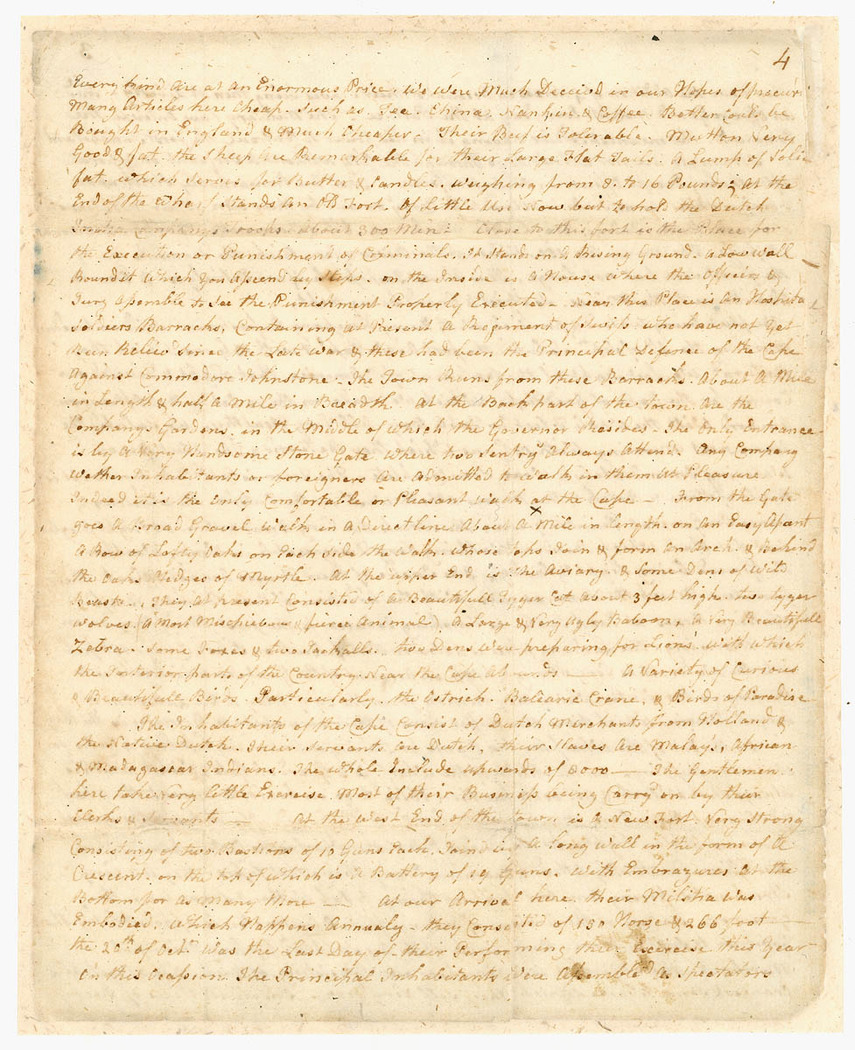 4
Every kind are at an Enormous Price. We were Much Deceiv'd in our Hopes of procur
Many Articles here Cheap. Such as. Tea. China, Nankin & Coffee. Better Could be
Bought in England & Much Cheaper - Their Beef is Tolerable. Mutton Very
Good & fat. the Sheep are Remarkable for their Large Flat Tails. A Lump of Solid
fat. which Serves for Butter & Candles. weighing from 8. to 16 Pounds; At the
End of the Wharf Stands An Old Fort. Of Little Use Now but to hold the Dutch
India Company's Troops. about 300 Men: Close to this fort is the Place for
the Execution or Punishment of Criminals. It Stands on A Rising Ground. A Low Wall
Round it Which You Ascend by Steps. on the Inside is A House where the Officers &
Jury Assemble to See the Punishment Properly Executed - Near this Place is An Hospital
Soldiers Barracks, Containing at Present A Regiment of Swiss who have not Yet
Been Reliev'd Since the Late War & these had been the Principal Defence of the Cape
Against Commodore Johnstone. The Town Runs from these Barracks. About A Mile
in Length & half A Mile in Breadth. At the Back part of the Town Are the
Companys Gardens. in the Middle of which the Governor Resides - The Only Entrance
is by A Very Handsome Stone Gate where two Sentry's Always Attend. Any Company
Wether Inhabitants or foreigners Are Admitted to Walk in them At Pleasure
Indeed it is the Only Comfortable or Pleasant walk at the Cape - From the Gate
goes A Broad Gravel Walk in A Direct line About A Mile in Length. on An Easy Asent
A Row of Lofty Oaks on Each Side the Walk. Whose tops Join & form An Arch. & Behind
the Oaks Hedges of Myrtle. At the upper End is The Aviary. & Some Dens of Wild
Beasts. They At present Consisted of A Beautifull Tyger Cat About 3 feet high. two tyger
wolves (A Most Mischievous & fierce Animal) A Large & Very Ugly Baboon, A Very Beautifull
Zebra. Some Foxes & two Jackalls. two Dens were preparing for Lions with which
the Interior parts of the Country Near the Cape Abounds - A Variety of Curious
& Beautifull Birds. Particularly the Ostrich. Balearic Crane, & Birds of Paradise
The Inhabitants of the Cape Consist of Dutch Merchants from Holland &
the Native Dutch. Their Servants are Dutch, their Slaves Are Malays, African
& Madagascar Indians. The whole Include upwards of 8000 - The Gentlemen
here take Very little Exercise Most of their Business being Carry'd on by their
Clerks & Servants - At the West End of the Town is A New Fort Very Strong
Consisting of two Bastions of 10 Guns Each. Join'd by A Long Wall in the form of A
Crescent. on the top of which is A Battery of 14 Guns. With Embrazures At the
Bottom for As Many More - At our Arrival here their Militia Was
Embodied. Which Happens Annualy - they Consisted of 130 Horse & 266 foot
the 20th of Octr Was the Last Day of their Performing their Exercise this Year
On this Ocasion. The Principal Inhabitants Were Assembled As Spectators